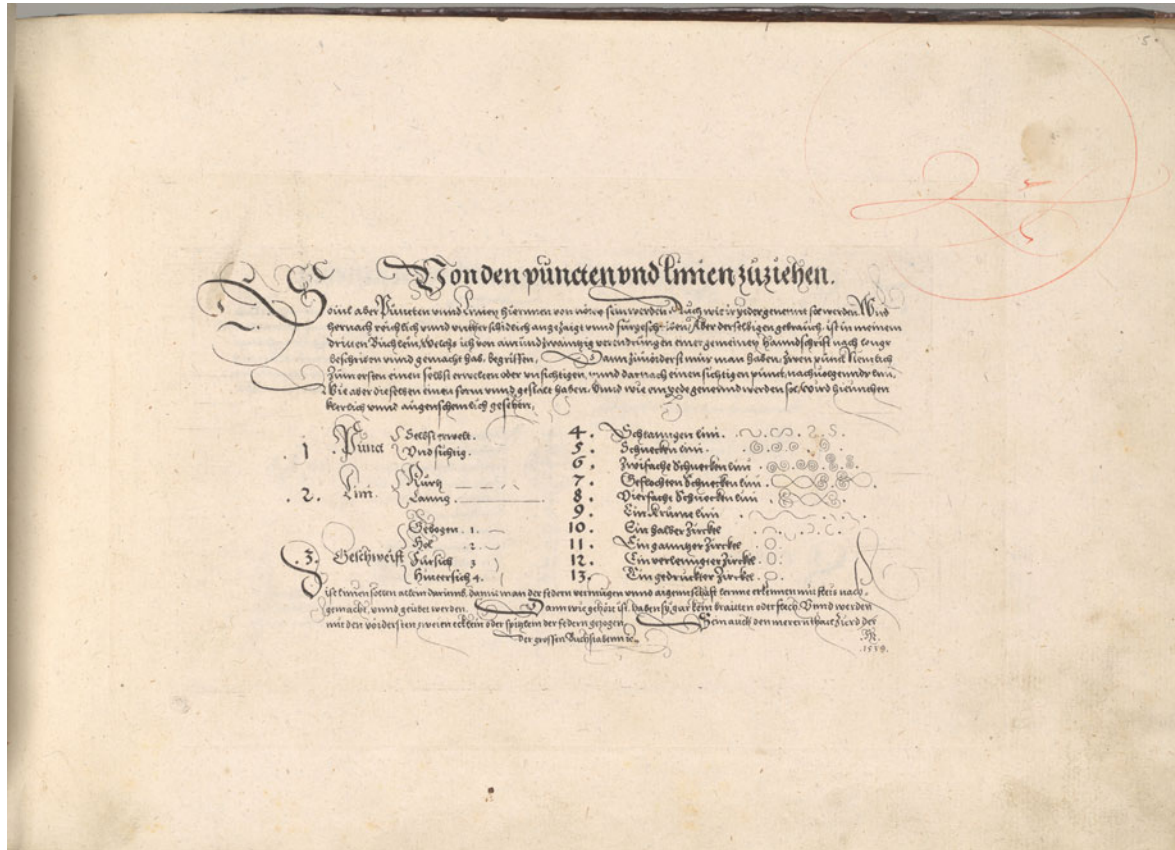 5
Von den puncten vnd linien zůziehen.
aber Puncten vnnd Linien hierinnen von sein werden. Auch wie ir yeder genennt sol werden. Wirdt
hernach reichlich vnnd vnderschidlich angezaigt vnnd fürgeschriben. Aber derselbigen gebrauch, ist in meinem
dritten Büchlein, Welchs ich von ainundzwaintzig verendrungen einer gemeinen hanndtschrifft nach lengs
beschriben vnnd gemacht hab, begriffen. Dann zům ersten můs man haben, zwen punct Nemlich
zům ersten einen selbst erwelten oder vnsichtigen, vnnd darnach einen sichtigen punct, nachuolgennde lini,
Wie aber dieselben einen form vnnd gestalt haben, Vnnd wie ein yede genennd werden sol, wird hieunden
klerlich vnnd augenscheinlich gesehen.
.1. Punct Selbst erwelt.
Vnd sichtig.
.2. Lini. Kurtz
Lanng.
.3. Geschweifft Gebogen. 1.
Hol 2.
Fürsich 3
Hintersich 4.
4. Schlanngen lini.
5. Schnecken lini.
6. Zwifache Schnecken lini
7. Geflochten Schnecken lini
8. Vierfache Schnecken lini
9. Ein Krume lini
10. Ein halber Zirckel
11. Ein ganntzer Zirckel
12. Ein verlenngter Zirckel
13. Ein gedruckter Zirckel.
linien sollen allein darumb, damit man der federn vermügen vnnd aigenschafft lerne erkennen mit fleis nach
gemacht, vnnd geübet werden. Dann wie gehört ist, haben sy gar kein braitten oder flech. Vnnd werden
mit den vördersten zweien ecklein oder spitzlein der federn getzogen. Sein auch den merern thail Zierd der
der grossen Buchstaben
.1559.